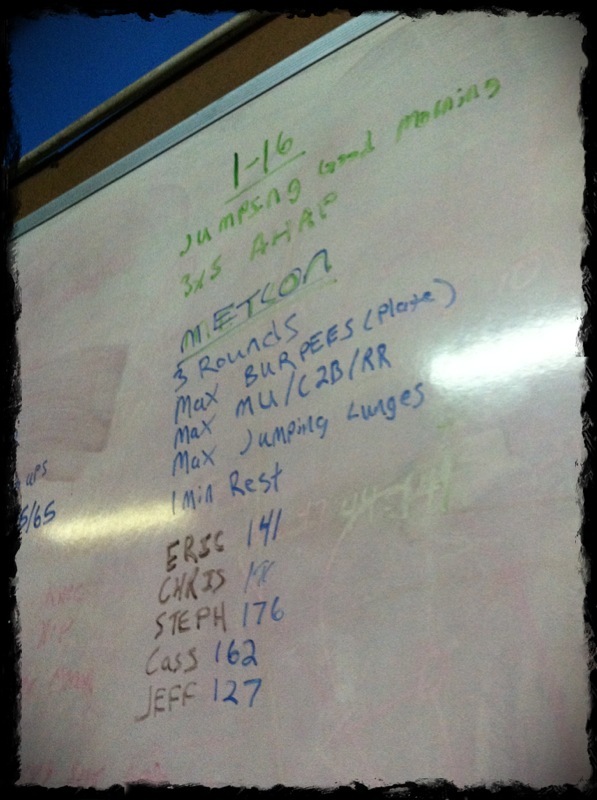 1-16
Jumping Good Morning
3x5 AHAP
METCON
3 Rounds
Max BURPEES (Plate)
Max MU/C2B/RR
Max Jumping Lunges
1 Min Rest
ups
5/65
ERIC 141
CHRIS
STEPH 176
Cass 162
JEFF 127